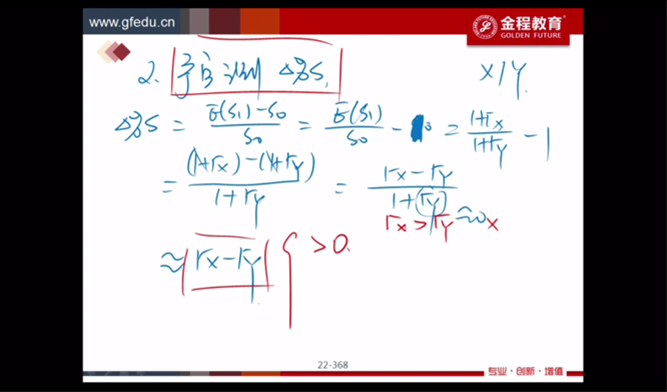 www.gfedu.cn
金程教育
GOLDEN FUTURE
2. 预测 Δ%S. X/Y
Δ%S = (E(S₁)-S₀)/S₀ = E(S₁)/S₀ - = (1+rx)/(1+ry) - 1
= ((1+rx)-(1+ry))/(1+ry) = (rx-ry)/(1+ry)
rx>ry ≈0 x
≈ rx-ry { >0.
22-368
专业·创新·增值